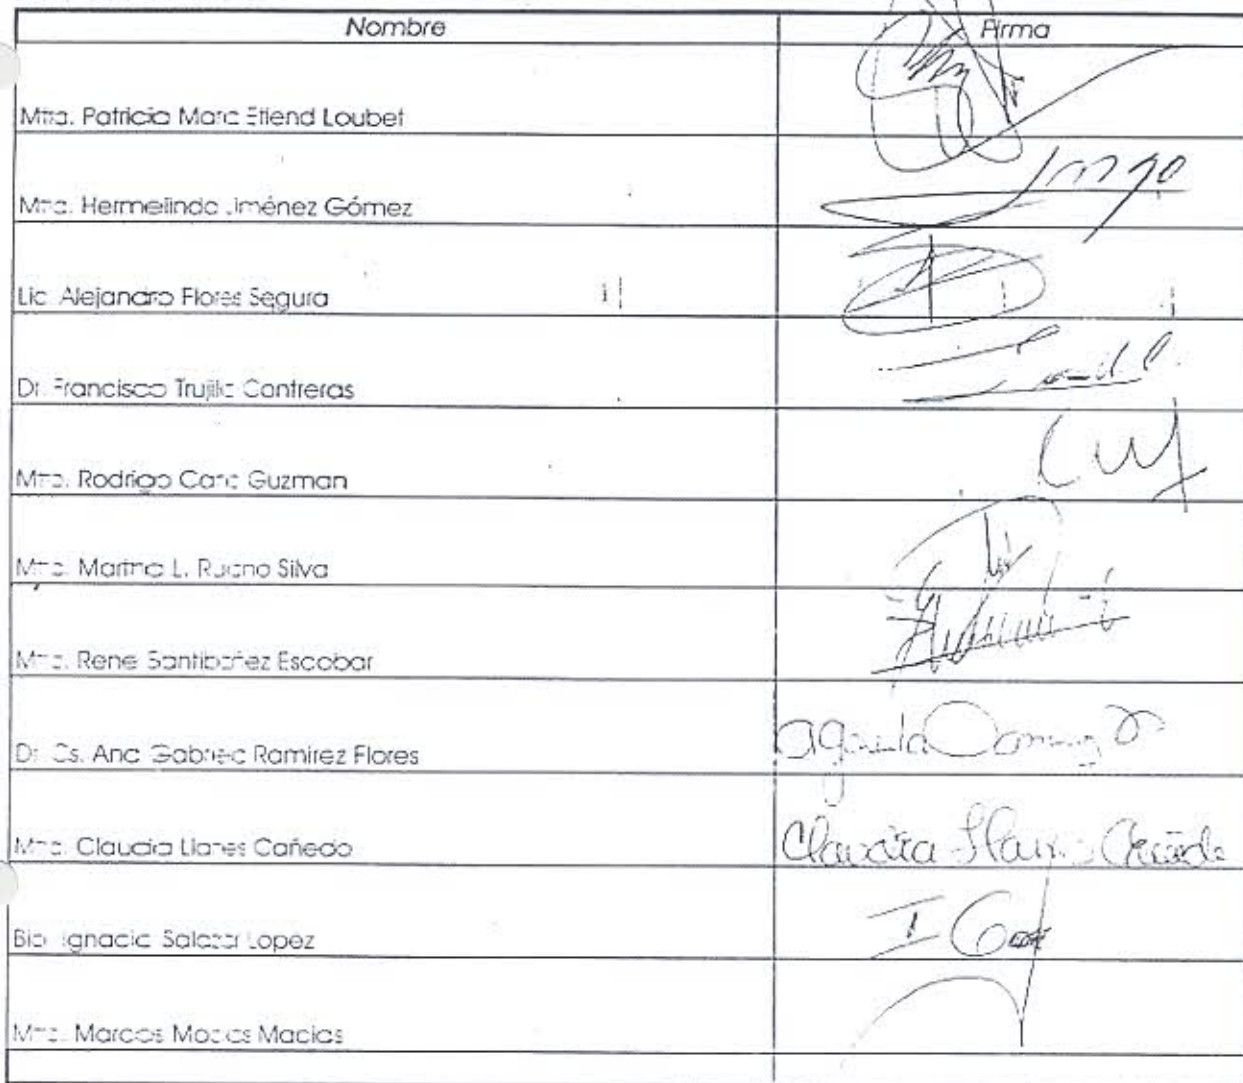 Nombre Firma
Mtra. Patricia Marc Etiend Loubet
Mtra. Hermelinda Jiménez Gómez
Lic. Alejandro Flores Segura
Dr. Francisco Trujillo Contreras
Mtro. Rodrigo Cano Guzman
Mtra. Martha L. Ruano Silva
Mtro. Rene Santibañez Escobar
Dr. Cs. Ana Gabriela Ramírez Flores
Mtra. Claudia Llanes Cañedo Claudia Llanes Cañedo
Bio. Ignacio Salazar Lopez
Mtro. Marcos Macias